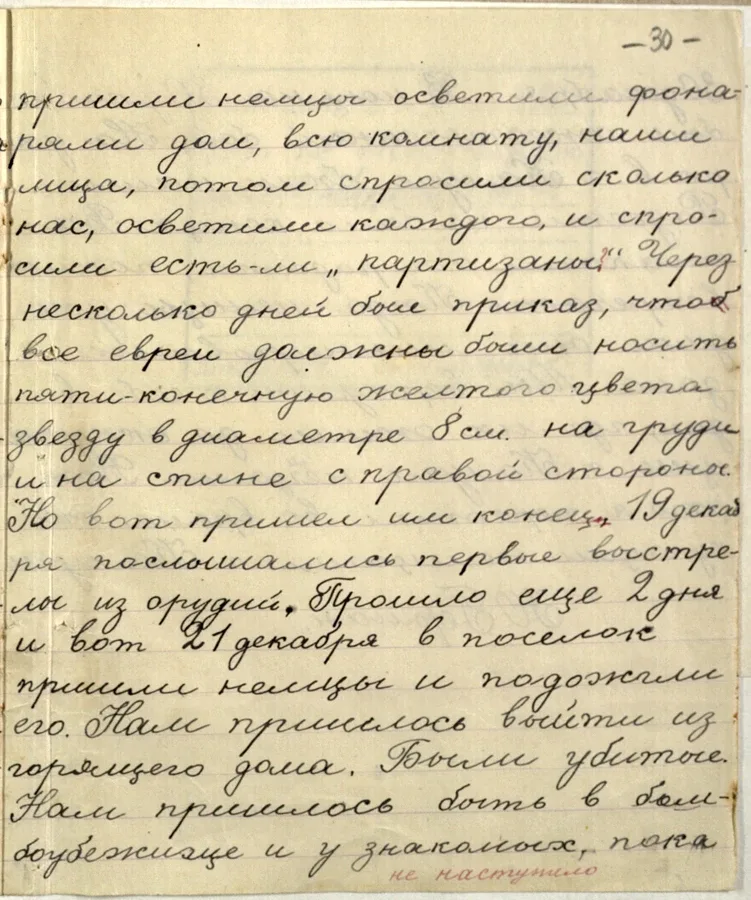 – 30 –
пришли немцы осветили фона-
рями дом, всю комнату, наши
лица, потом спросили сколько
нас, осветили каждого, и спро-
сили есть-ли „партизаны?“ Через
несколько дней был приказ, чтоб
все евреи должны были носить
пяти-конечную желтого цвета
звезду в диаметре 8 см. на груди
и на спине с правой стороны.
Но вот пришел им конец, 19 декаб
ря послышались первые выстре-
лы из орудий. Прошло еще 2 дня
и вот 21 декабря в поселок
пришли немцы и подожгли
его. Нам пришлось выйти из
горящего дома. Были убитые.
Нам пришлось быть в бом-
боубежище и у знакомых, пока
не наступило